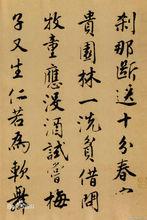 剎那斷送十分春
貴園林一洗貧借問
牧童應沒酒試嘗梅
子又生仁若為軟舞